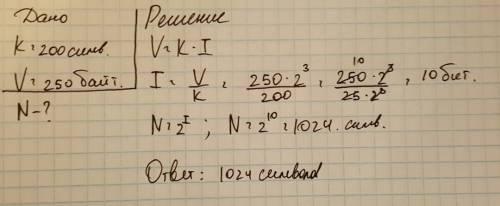 Дано
K = 200 симв.
V = 250 байт.
N - ?
Решение
V = K · I
I = V/K = 250 · 2³/200 = 250 · 2³/25 · 2³ = 10 бит.
10
N = 2^I ; N = 2^10 = 1024 симв.
Ответ: 1024 символа